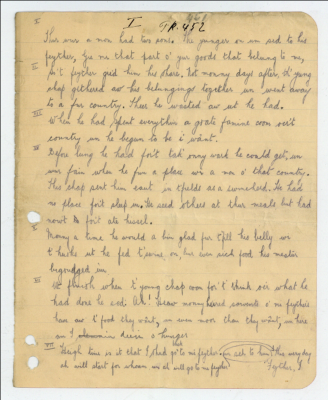 I TR.452
I
Thur wur a mon had two sons. The younger on um sed to his
feyther, Gie me that part o' yur goods that belung to me,
II
So't feyther geed him his share. Not monny days after, th' yung
chap gethered aw his belongings together un went away
to a fur country. Theer he wasted aw ut he had.
III
When he had spent everythin a grate famine coom oer't
country un he begun to be i want.
IV
Before lung he had fort tak onny ward he could get, un
wur fain when he fun a place wi a mon o' that country.
This chap sent him eawt in t'fields as a swineherd. He had
no place fort sleep in. He seed others at thur meals but had
nowt fort ate hissel.
V
Monny a time he would a bin glad fur t'fill his belly wi
t'husks ut he fed t'swine, on, but even sich food his mester
begrudged im
VI
At finish when t' young chap coom for't think oer what he
had dore he sed Ah! Heaw monny hired servants o' mi feythers
have aw t' food they want, un even moor than they want, un here
am I deein o' hunger
VII
Heigh time is it that I shud go to mi feyther un seh to him this very day
ah will start for whoam un ah will go to mi feyther "Feyther, I